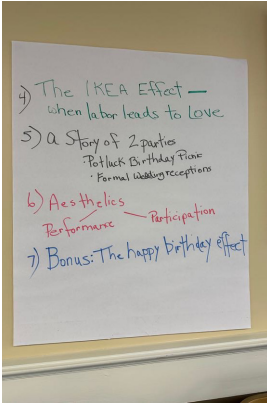 4) The IKEA Effect —
when labor leads to Love
5) a Story of 2 parties
· Potluck Birthday Picnic
· Formal Wedding receptions
6) Aesthetics
Performance Participation
7) Bonus: The happy birthday effect